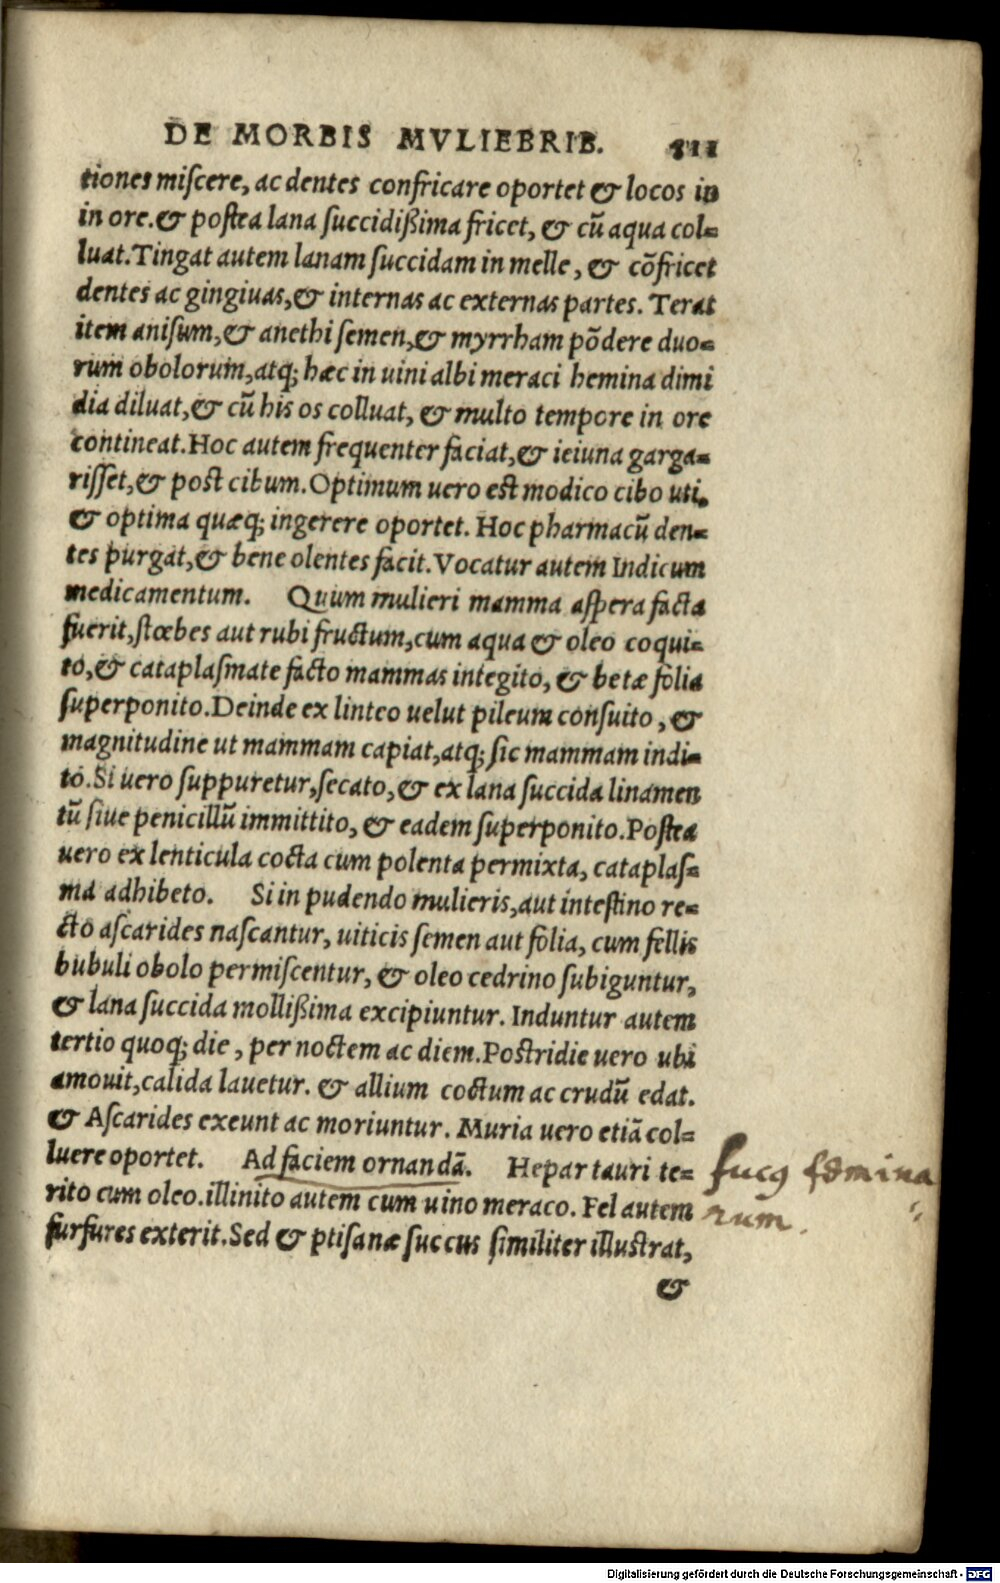 DE MORBIS MVLIEBRIB. 111
tiones miſcere, ac dentes confricare oportet & locos in
in ore. & poſtea lana ſuccidißima fricet, & cū aqua col=
luat. Tingat autem lanam ſuccidam in melle, & cōfricet
dentes ac gingiuas, & internas ac externas partes. Terat
item aniſum, & anethi ſemen, & myrrham pōdere duo=
rum obolorum, atq; hæc in uini albi meraci hemina dimi
dia diluat, & cū his os colluat, & multo tempore in ore
contineat. Hoc autem frequenter faciat, & ieiuna garga=
riſſet, & post cibum. Optimum uero est modico cibo uti,
& optima quæq; ingerere oportet. Hoc pharmacū den=
tes purgat, & bene olentes facit. Vocatur autem Indicum
medicamentum. Quum mulieri mamma aſpera facta
fuerit, ſtœbes aut rubi fructum, cum aqua & oleo coqui=
to, & cataplaſmate facto mammas integito, & betæ folia
ſuperponito. Deinde ex linteo uelut pileum conſuito, &
magnitudine ut mammam capiat, atq; ſic mammam indi=
to. Si uero ſuppuretur, ſecato, & ex lana ſuccida linamen
tū ſiue penicillū immittito, & eadem ſuperponito. Poſtea
uero ex lenticula cocta cum polenta permixta, cataplaſ=
ma adhibeto. Si in pudendo mulieris, aut inteſtino re=
cto aſcarides naſcantur, uiticis ſemen aut folia, cum fellis
bubuli obolo permiſcentur, & oleo cedrino ſubiguntur,
& lana ſuccida mollißima excipiuntur. Induntur autem
tertio quoq; die, per noctem ac diem. Postridie uero ubi
amouit, calida lauetur. & allium coctum ac crudū edat.
& Aſcarides exeunt ac moriuntur. Muria uero etiā col=
luere oportet. Ad faciem ornandā. Hepar tauri te=
rito cum oleo. illinito autem cum uino meraco. Fel autem
furfures exterit. Sed & ptiſanæ ſuccus ſimiliter illuſtrat,
&
fucꝰ fœmina
rum.
Digitalisierung gefördert durch die Deutsche Forschungsgemeinschaft - DFG